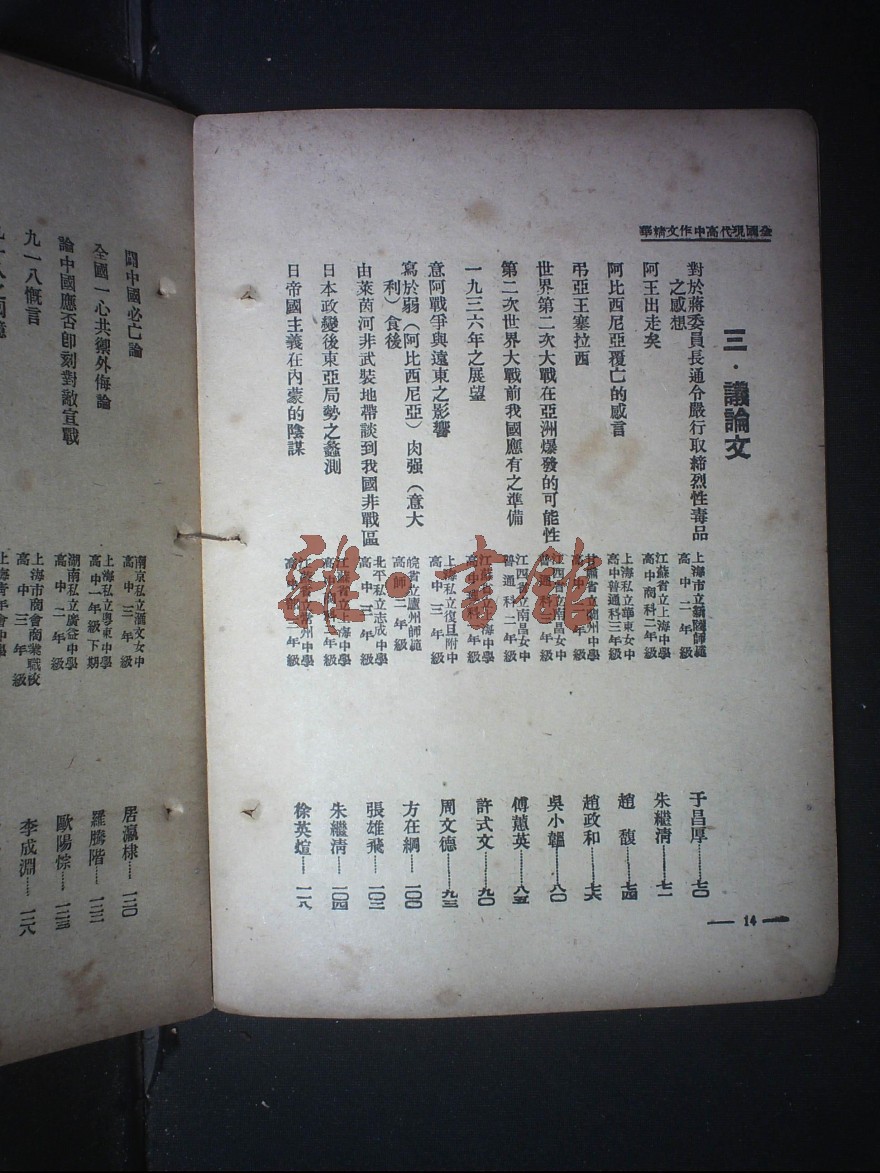 全國現代高中作文精華
三·議論文
對於蔣委員長通令嚴行取締烈性毒品
之感想
上海市立新陸師範
高中二年級
于昌厚……七〇
阿王出走矣
江蘇省立上海中學
高中商科二年級
朱繼清……七一
阿比西尼亞覆亡的感言
上海私立華東女中
高中普通科三年級
趙馥……七四
弔亞王塞拉西
甘肅省立蘭州中學
高中二年級
趙政和……七六
世界第二次大戰在亞洲爆發的可能性
江西省立南昌女中
普通科三年級
吳小韞……八〇
第二次世界大戰前我國應有之準備
江西省立南昌女中
普通科二年級
傅蕙英……八五
一九三六年之展望
江蘇省立上海中學
高中理科二年級
許式文……九〇
意阿戰爭與遠東之影響
上海私立復旦附中
高中三年級
周文德……九三
寫於弱(阿比西尼亞)肉强(意大
利)食後
皖省立廬州師範
高師二年級
方在綱……一〇〇
由萊茵河非武裝地帶談到我國非戰區
北平私立志成中學
高中三年級
張雄飛……一〇二
日本政變後東亞局勢之蠡測
江蘇省立上海中學
高中商科二年級
朱繼清……一〇四
日帝國主義在內蒙的陰謀
江蘇省立常州中學
高中部一年級
徐英煊……一一八
— 14 —
闢中國必亡論
南京私立滙文女中
高中三年級
居瀛棣……一二〇
全國一心共禦外侮論
上海私立粵東中學
高中一年級下期
羅騰階……一二二
論中國應否卽刻對敵宣戰
湖南私立廣益中學
高中二年級
歐陽悰……一二三
九一八慨言
上海市商會商業職校
高中三年級
李成淵……一二八
上海青年會中學
雜·書館